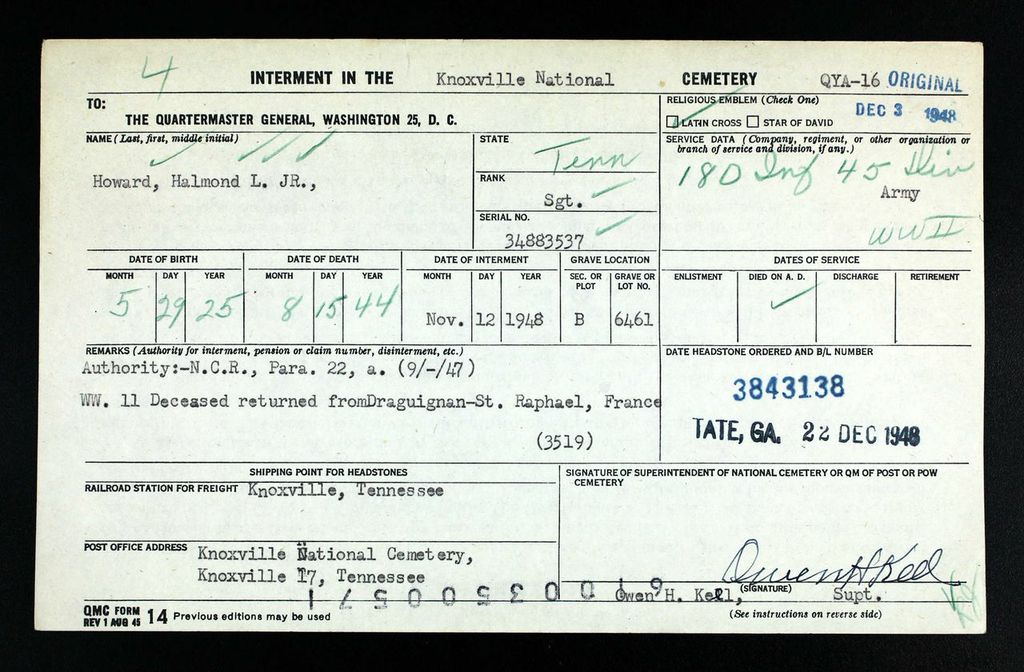 4
INTERMENT IN THE Knoxville National CEMETERY QYA-16 ORIGINAL
TO:
THE QUARTERMASTER GENERAL, WASHINGTON 25, D. C.
RELIGIOUS EMBLEM (Check One)
LATIN CROSS STAR OF DAVID
DEC 3 1948
NAME (Last, first, middle initial)
Howard, Halmond L. JR.,
STATE
Tenn
RANK
Sgt.
SERIAL NO.
34883537
SERVICE DATA (Company, regiment, or other organization or branch of service and division, if any.)
180 Inf 45 Div
Army
WW II
DATE OF BIRTH DATE OF DEATH DATE OF INTERMENT GRAVE LOCATION DATES OF SERVICE
MONTH DAY YEAR MONTH DAY YEAR MONTH DAY YEAR SEC. OR PLOT GRAVE OR LOT NO. ENLISTMENT DIED ON A. D. DISCHARGE RETIREMENT
5 29 25 8 15 44 Nov. 12 1948 B 6461
REMARKS (Authority for interment, pension or claim number, disinterment, etc.)
Authority:-N.C.R., Para. 22, a. (9/-/47)
WW. 11 Deceased returned fromDraguignan-St. Raphael, France
(3519)
DATE HEADSTONE ORDERED AND B/L NUMBER
3843138
TATE, GA. 22 DEC 1948
SHIPPING POINT FOR HEADSTONES
RAILROAD STATION FOR FREIGHT Knoxville, Tennessee
POST OFFICE ADDRESS Knoxville National Cemetery,
Knoxville 17, Tennessee
SIGNATURE OF SUPERINTENDENT OF NATIONAL CEMETERY OR QM OF POST OR POW CEMETERY
Owen H Kell
Owen H. Kell, (SIGNATURE) Supt.
QMC FORM 14 Previous editions may be used
REV 1 AUG 45
(See instructions on reverse side)